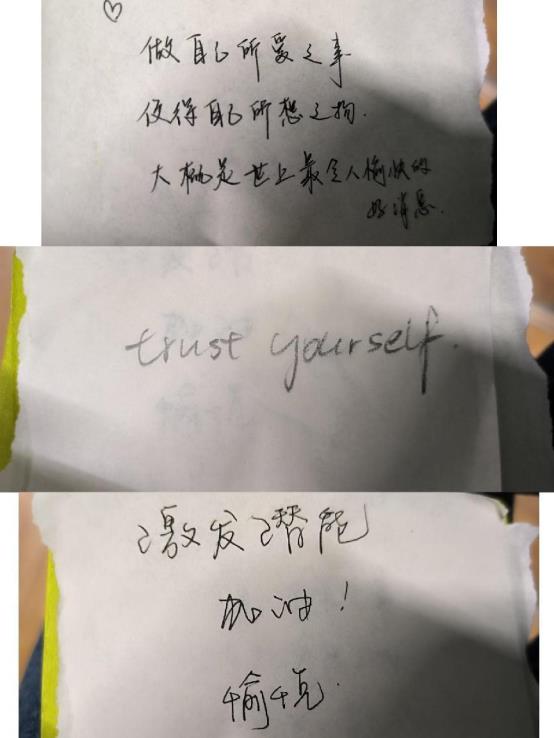 做自己所爱之事
使得自己所想之物.
大概是世上最令人愉快的
好消息.
trust yourself.
激发潜能
加油!
愉悦.